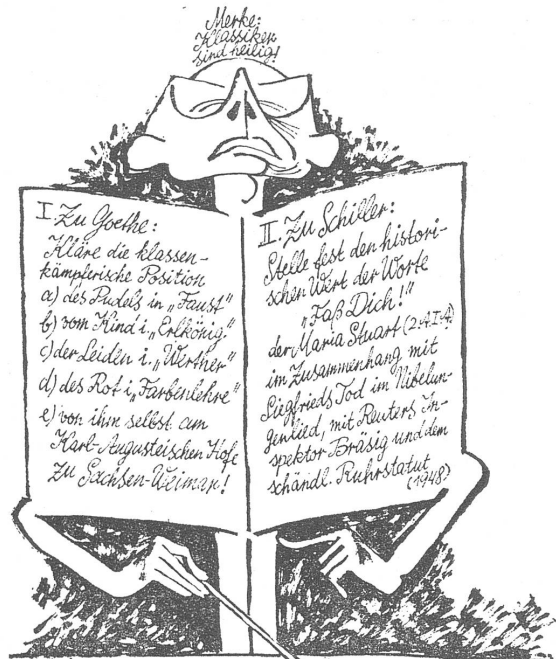 Merke:
Klassiker
sind heilig!
I. Zu Goethe:
Kläre die klassen-
kämpferische Position
a) des Pudels in „Faust"
b) vom Kind i. „Erlkönig"
c) der Leiden i. „Werther"
d) des Rot i. „Farbenlehre"
e) von ihm selbst am
Karl-Augusteischen Hofe
zu Sachsen-Weimar!
II. Zu Schiller:
Stelle fest den histori-
schen Wert der Worte
„Faß Dich!"
der Maria Stuart (2.A.I.4)
im Zusammenhang mit
Siegfrieds Tod im Nibelun-
genlied, mit Reuters In-
spektor Bräsig und dem
schändl. Ruhrstatut
(1948)